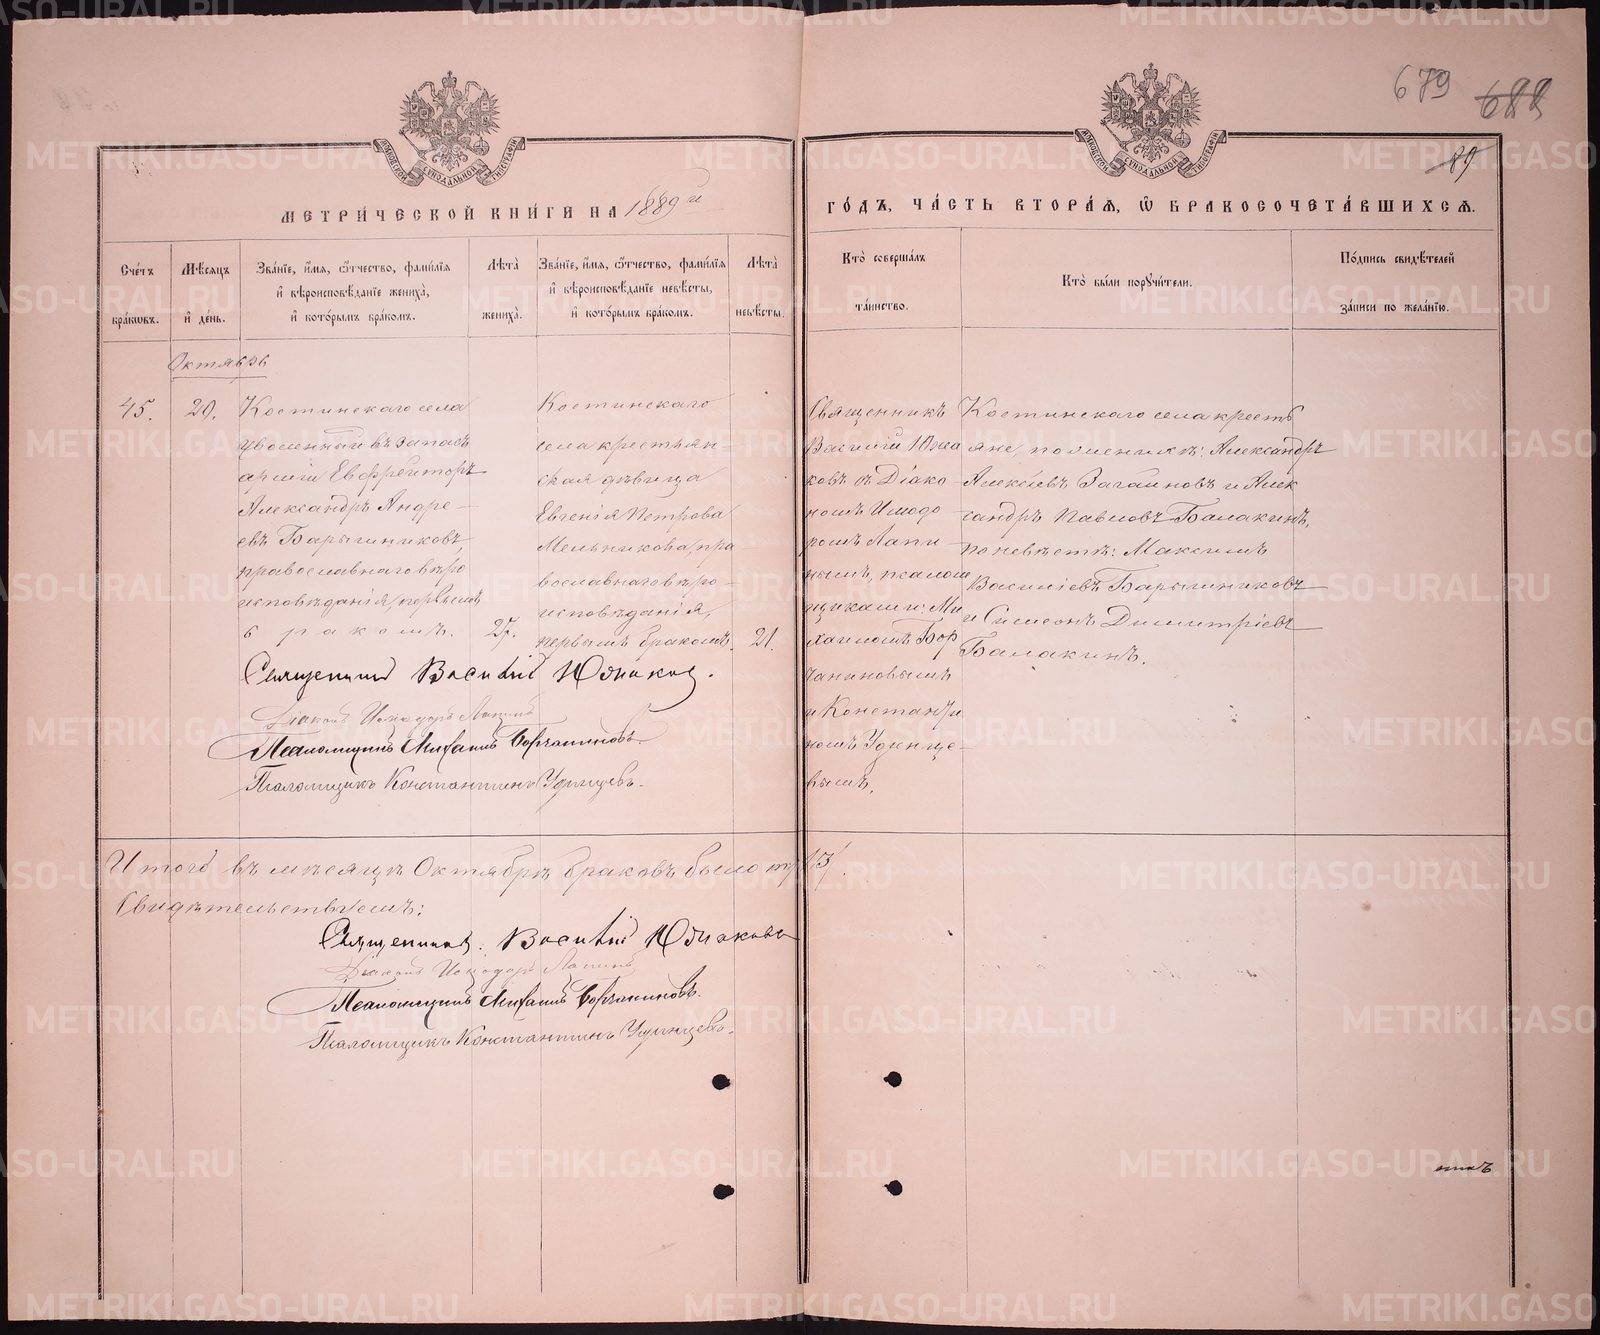 679 688
89
МЕТРИЧЕСКОЙ КНИГИ НА 1889й
ГОДЪ, ЧАСТЬ ВТОРАЯ, Ѡ БРАКОСОЧЕТАВШИХСЯ.
Счетъ браковъ.
Мѣсяцъ и день.
Званіе, имя, отчество, фамилія и вѣроисповѣданіе жениха, и которымъ бракомъ.
Лѣта жениха.
Званіе, имя, отчество, фамилія и вѣроисповѣданіе невѣсты, и которымъ бракомъ.
Лѣта невѣсты.
Кто совершалъ таинство.
Кто были поручители.
Подпись свидѣтелей записи по желанію.
Октябрь
45.
29.
Костинскаго села
уволенный въ запасъ
арміи Евфрейторъ
Александръ Андре-
евъ Барышниковъ,
православнаго вѣро
исповѣданія, первымъ
бракомъ.
25.
Костинскаго
села крестьян-
ская дѣвица
Евгенія Петрова
Мельникова, пра
вославнаго вѣро-
исповѣданія,
первымъ бракомъ.
21.
Священникъ
Василій Южа
ковъ съ Діако
номъ Исидо
ромъ Лапи-
нымъ, псалом
щиками: Ми
хаиломъ Бор
чаниновымъ
и Константи
номъ Удинце-
вымъ.
Костинскаго села кресть
яне, по женихѣ: Александръ
Алексѣевъ Загайновъ и Алек
сандръ Павловъ Балакинъ,
по невѣстѣ: Максимъ
Василіевъ Барышниковъ
и Симеонъ Димитріевъ
Балакинъ.
Священникъ Василій Южаковъ.
Діаконъ Исидоръ Лапинъ
Псаломщикъ Михаилъ Борчаниновъ.
Псаломщикъ Константинъ Удинцевъ.
Итого въ мѣсяцѣ Октябрѣ браковъ было три /3/.
Свидѣтельствуемъ:
Священникъ Василій Южаковъ
Діаконъ Исидоръ Лапинъ
Псаломщикъ Михаилъ Борчаниновъ.
Псаломщикъ Константинъ Удинцевъ.
METRIKI.GASO-URAL.RU